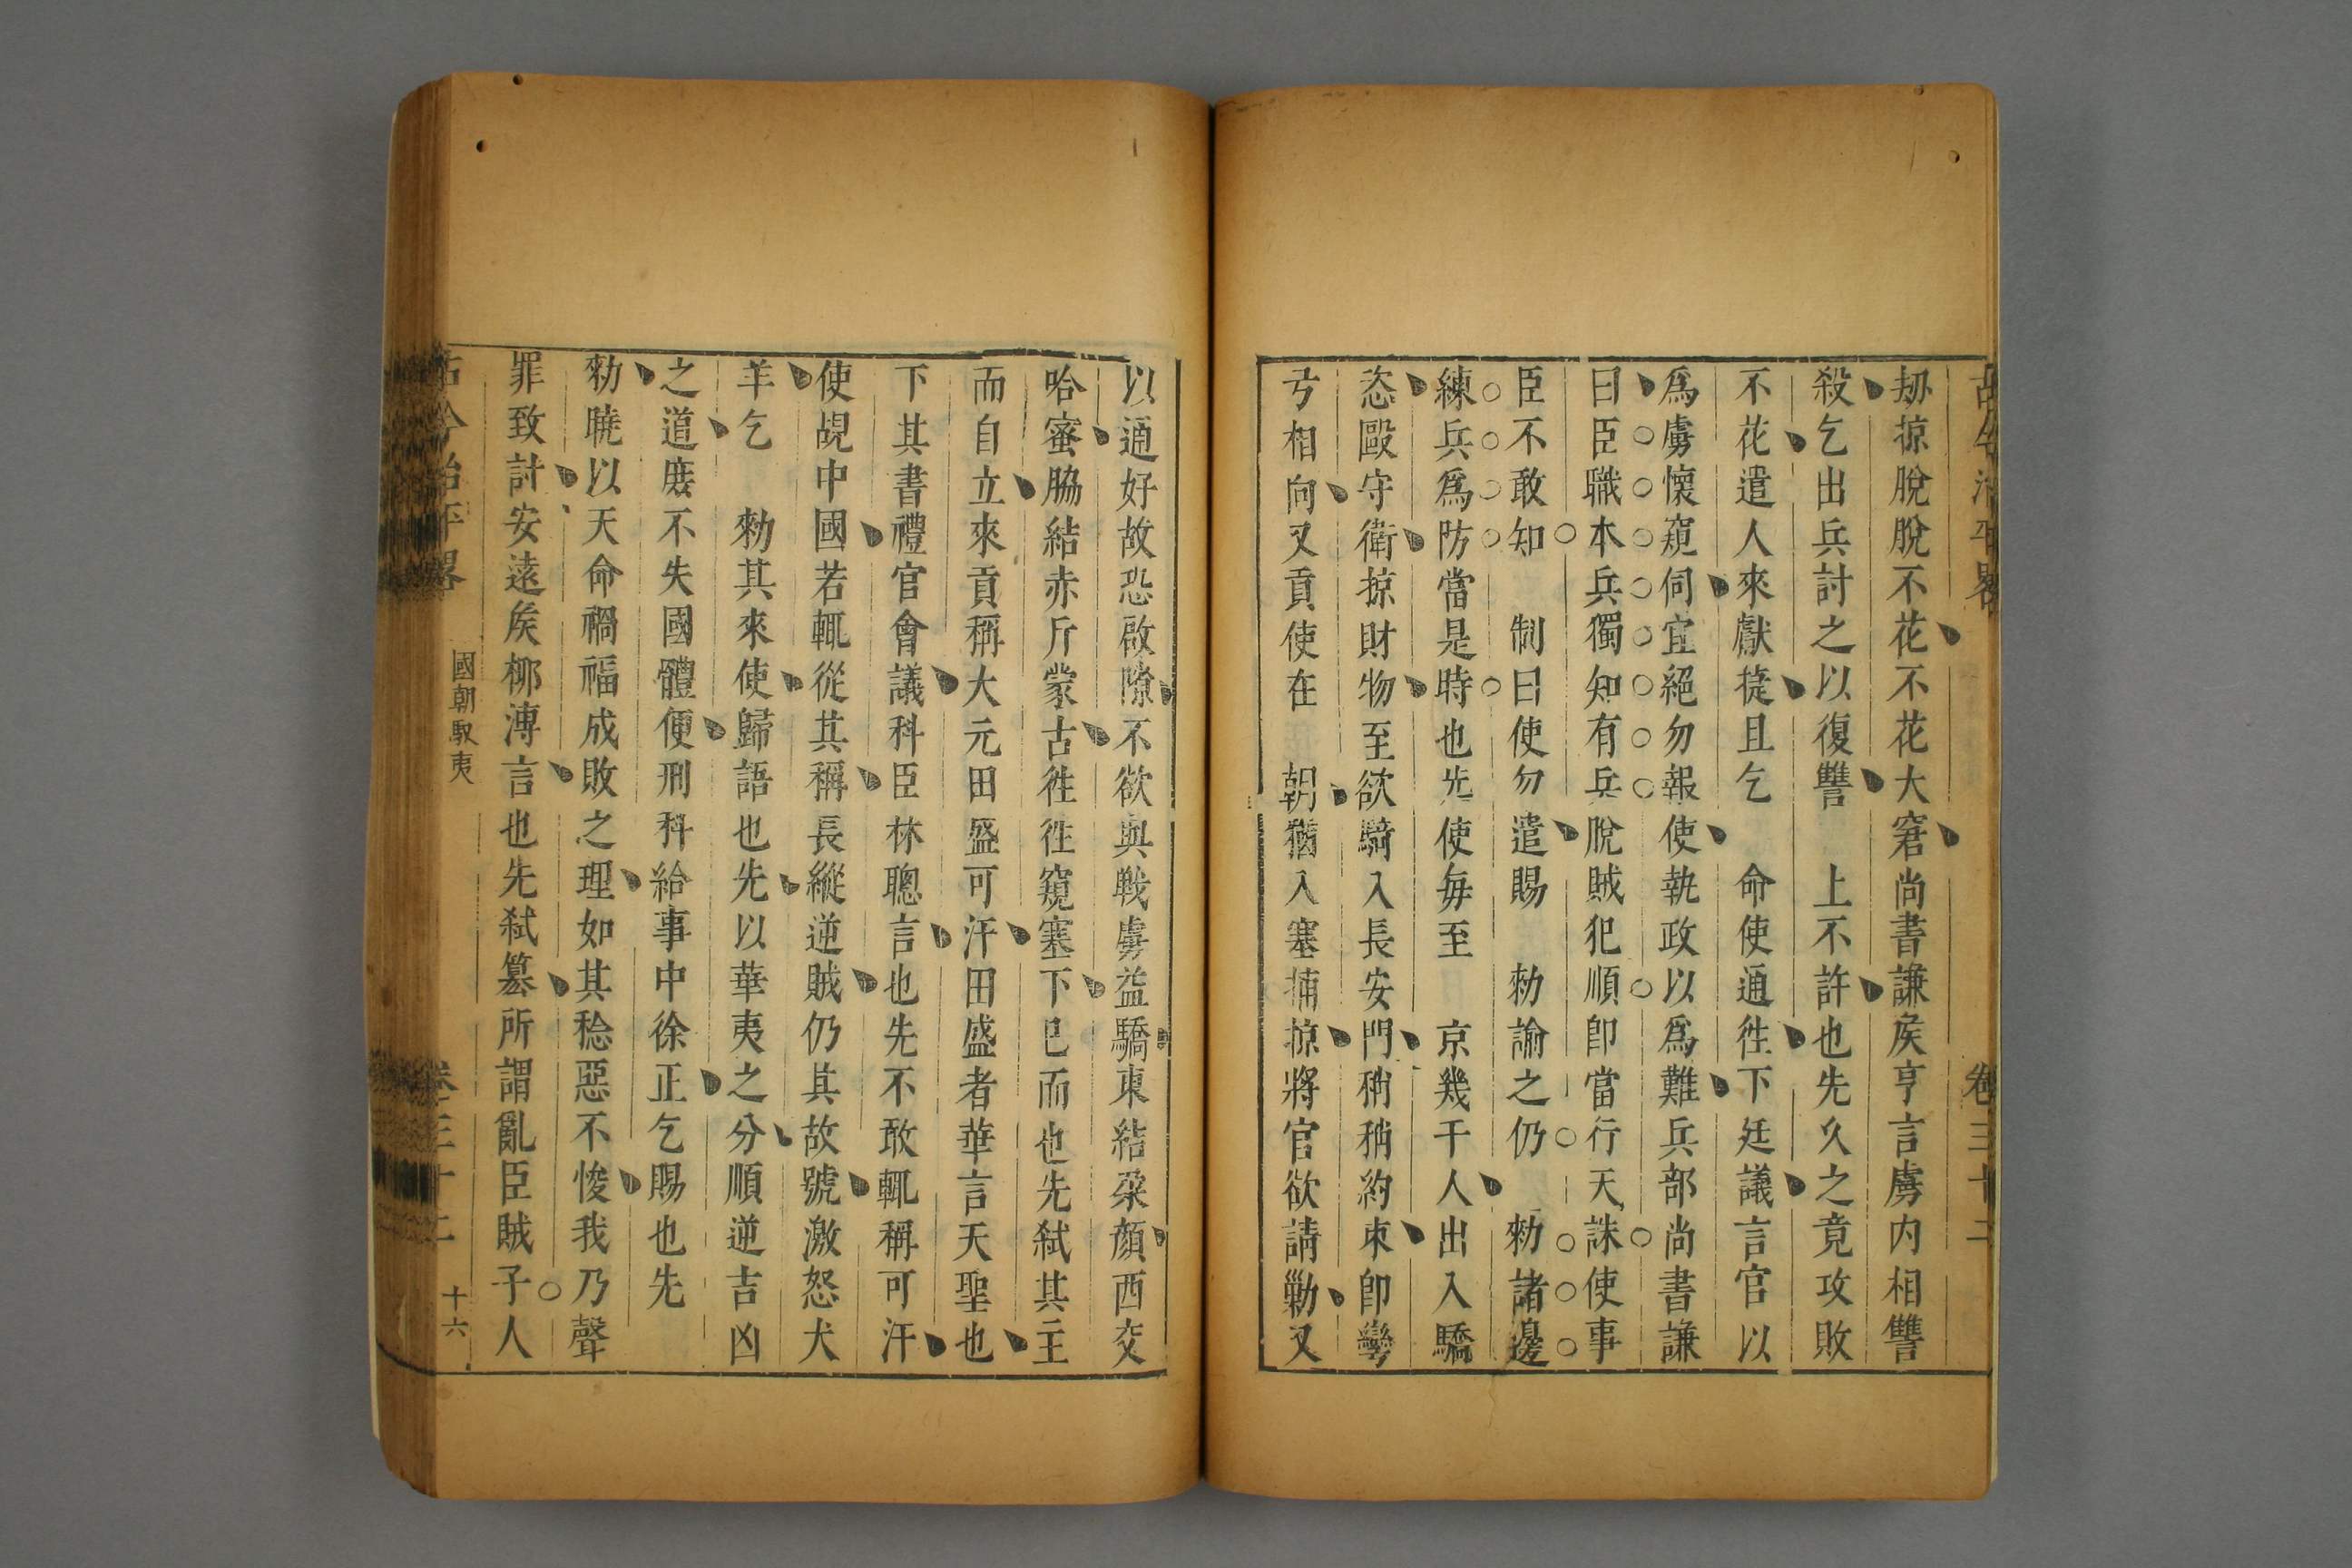 古今治平畧　卷三十二
刼掠脫脫不花不花大窘尚書謙矦亨言虜内相讐
殺乞出兵討之以復讐　上不許也先久之竟攻敗
不花遣人來獻捷且乞　命使通徃下廷議言官以
爲虜懷窺伺宜絕勿報使執政以爲難兵部尚書謙
曰臣職本兵獨知有兵脫賊犯順卽當行天誅使事
臣不敢知　制曰使勿遣賜　勑諭之仍　勑諸邊
練兵爲防當是時也先使每至　京幾千人出入驕
恣毆守衛掠財物至欲騎入長安門稍稍約束卽彎
弓相向又貢使在　朝猶入塞捕掠將官欲請勦又
以通好故恐啟隙不欲與戰虜益驕東結朶顏西交
哈蜜脇結赤斤蒙古徃徃窺塞下已而也先弑其主
而自立來貢稱大元田盛可汗田盛者華言天聖也
下其書禮官會議科臣林聰言也先不敢輒稱可汗
使覘中國若輒從其稱長縱逆賊仍其故號激怒犬
羊乞　勑其來使歸語也先以華夷之分順逆吉凶
之道庻不失國體便刑科給事中徐正乞賜也先
勑曉以天命禍福成敗之理如其稔惡不悛我乃聲
罪致討安遠矦栁溥言也先弑篡所謂亂臣賊子人
古今治平畧　國朝馭夷　卷三十二　十六